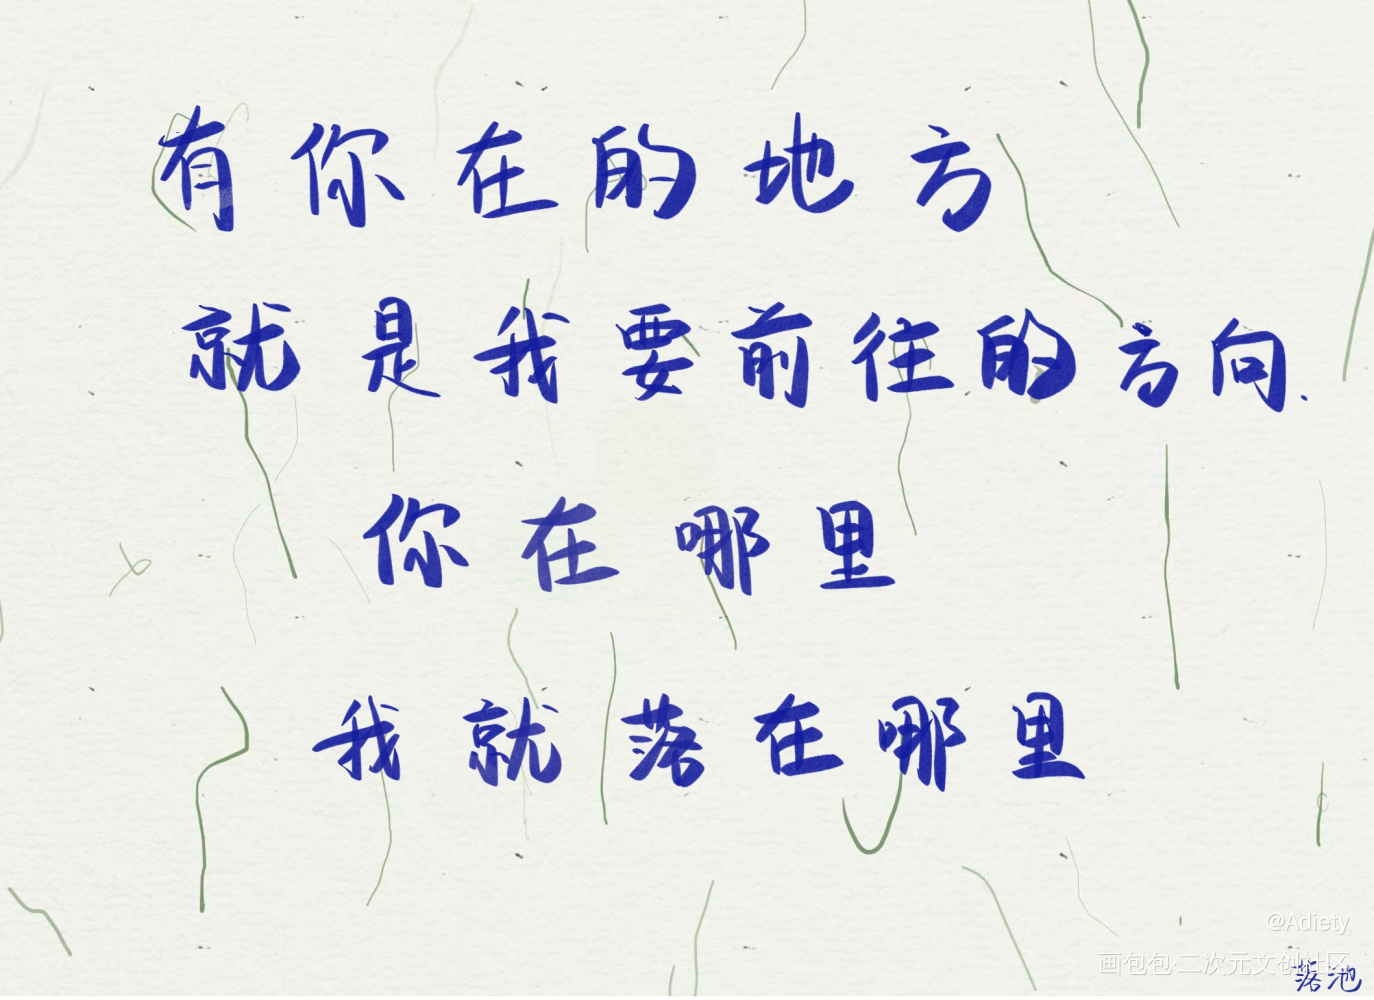 有你在的地方
就是我要前往的方向.
你在哪里
我就落在哪里
@Adiety
画包包·二次元文创社区
落池